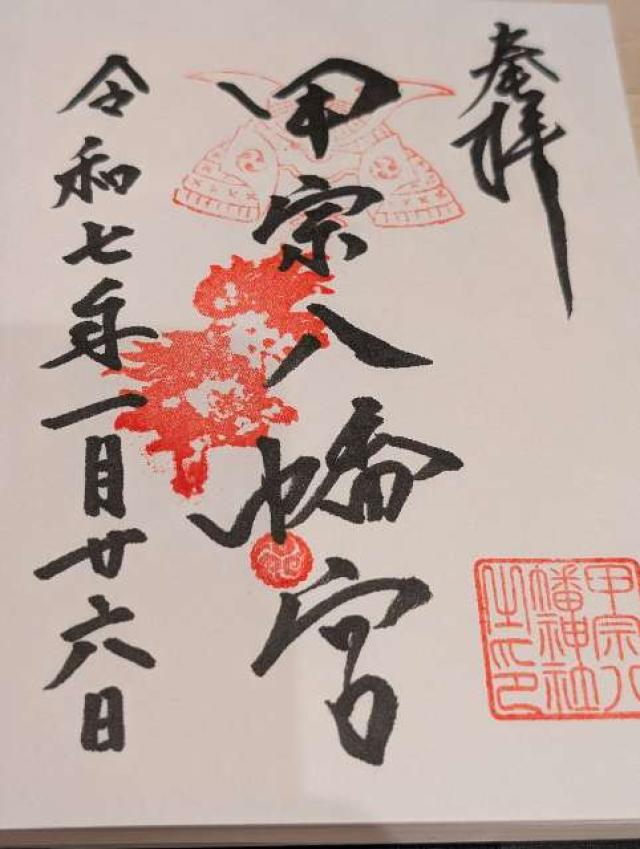 奉拝
甲宗八幡宮
令和七年一月廿六日
甲宗八
幡神社
之印